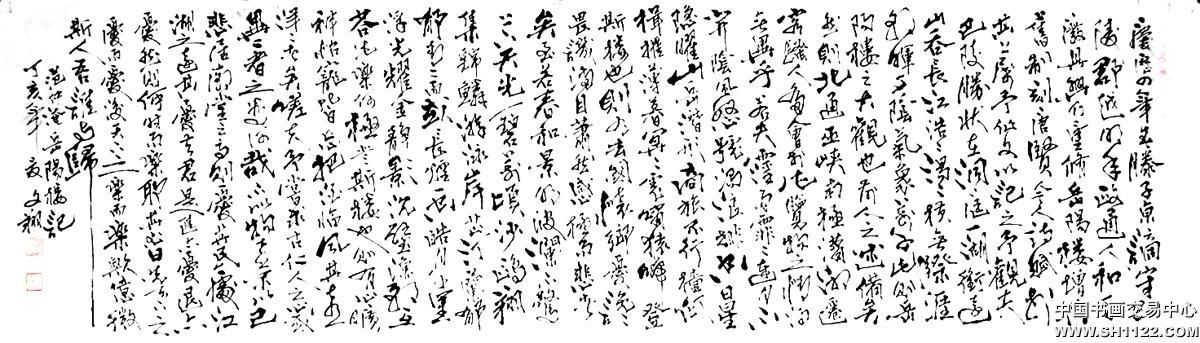 慶曆四年春滕子京謫守巴
陵郡越明年政通人和百
廢具興乃重修岳陽樓增其
舊制刻唐賢今人詩賦於
其上屬予作文以記之予觀夫
巴陵勝狀在洞庭一湖銜遠
山吞長江浩浩湯湯橫無際涯
朝暉夕陰氣象萬千此則岳
陽樓之大觀也前人之述備矣
然則北通巫峽南極瀟湘遷
客騷人多會於此覽物之情得
無異乎若夫霪雨霏霏連月
不開陰風怒號濁浪排空日星
隱曜山岳潛形商旅不行檣傾
楫摧薄暮冥冥虎嘯猿啼登
斯樓也則有去國懷鄉憂讒
畏譏滿目蕭然感極而悲者
矣至若春和景明波瀾不驚
上下天光一碧萬頃沙鷗翔
集錦鱗游泳岸芷汀蘭郁
郁青青而或長煙一空皓月千里
浮光耀金靜影沉璧漁歌互
答此樂何極登斯樓也則有心曠
神怡寵辱皆忘把酒臨風其喜
洋洋者矣嗟夫予嘗求古仁人之心或
異二者之為何哉不以物喜不以己
悲居廟堂之高則憂其民處江
湖之遠則憂其君是進亦憂退亦
憂然則何時而樂耶其必曰先天下之
憂而憂後天下之樂而樂歟噫微
斯人吾誰與歸
范仲淹岳陽樓記
丁亥年夏文翔
中国书画交易中心
WWW.SH1122.COM